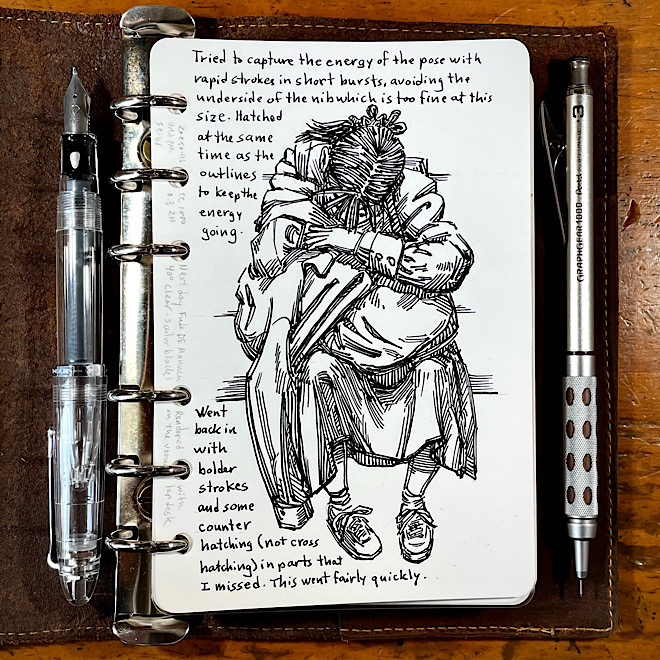 Tried to capture the energy of the pose with
rapid strokes in short bursts, avoiding the
underside of the nib which is too fine at this
size. Hatched
at the same
time as the
outlines
to keep the
energy
going.
Went
back in
with
bolder
strokes
and some
counter
hatching (not cross
hatching) in parts that
I missed. This went fairly quickly.
Next day, Fude DE Mannen
40° clear - Sailor black
Rendered with
on the lap desk
GRAPHGEAR 1000
.3